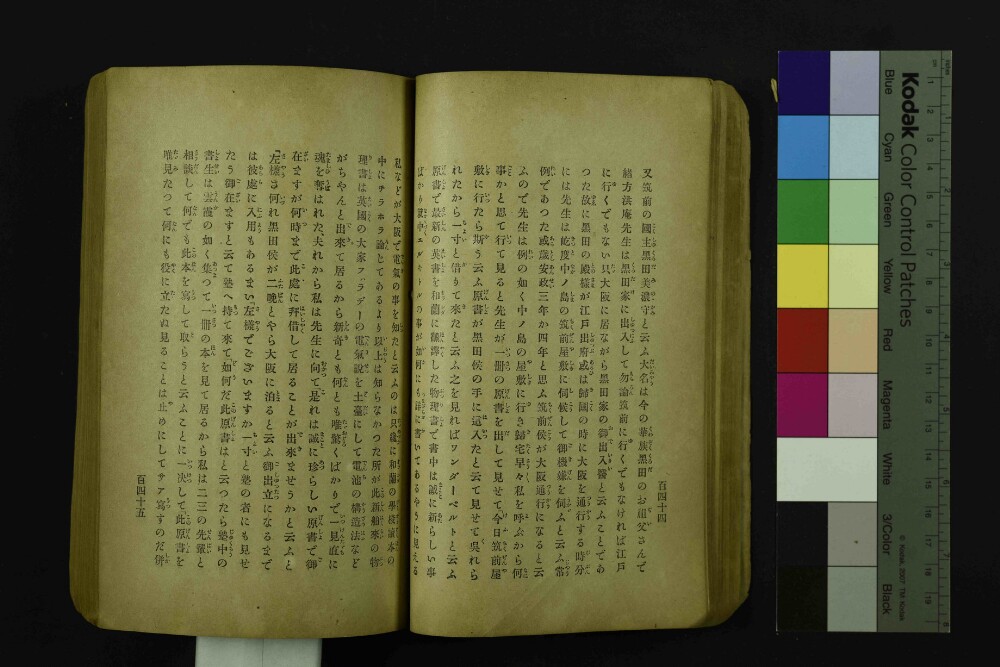 又筑前の國主黒田美濃守と云ふ大名は今の華族黒田のお祖父さんで
緒方洪庵先生は黒田家に出入して勿論筑前に行くでもなければ江戸
に行くでもない只大阪に居ながら黒田家の御出入醫と云ふことであ
つた故に黒田の殿樣が江戸出府或は歸國の時に大阪を通行する時分
には先生は屹度中ノ島の筑前屋敷に伺候して御機嫌を伺ふと云ふ常
例であつた或歳安政三年か四年と思ふ筑前侯が大阪通行になると云
ふので先生は例の如く中ノ島の屋敷に行き歸宅早々私を呼ぶから何
事かと思て行て見ると先生が一冊の原書を出して見せて今日筑前屋
敷に行たら斯う云ふ原書が黒田侯の手に這入たと云て見せて呉れら
れたから一寸と借りて來たと云ふ之を見ればワンダーベルトと云ふ
原書で最新の英書を和蘭に飜譯した物理書で書中は誠に新らしい事
ばかり就中エレキトルの事が如何にも詳に書いてあるやうに見える
百四十四
私などが大阪で電氣の事を知たと云ふのは只纔に和蘭の學校讀本の
中にチラホラ論じてあるより以上は知らなかつた所が此新舶來の物
理書は英國の大家フラデーの電氣説を土臺にして電池の構造法など
がちやんと出來て居るから新奇とも何とも唯驚くばかりで一見直に
魂を奪はれた夫れから私は先生に向て『是れは誠に珍らしい原書で御
在ますが何時まで此處に拝借して居ることが出來ませうかと云ふと
『左樣さ何れ黒田侯が二晩とやら大阪に泊ると云ふ御出立になるまで
は彼處に入用もあるまい『左樣でございますか一寸と塾の者にも見せ
たう御在ますと云て塾へ持て來て『如何だ此原書はと云つたら塾中の
書生は雲霞の如く集つて一冊の本を見て居るから私は二三の先輩と
相談して何でも此本を寫して取らうと云ふことに一決して『此原書を
唯見たつて何にも役に立たぬ見ることは止めにしてサア寫すのだ併
百四十五
Kodak Color Control Patches
Blue
Cyan
Green
Yellow
Red
Magenta
White
3/Color
Black
© Kodak, 2007 TM: Kodak